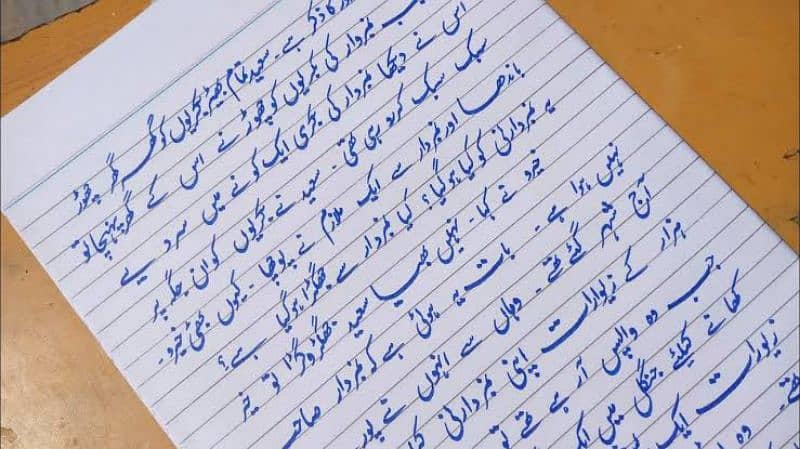 کا ذکر ہے۔ سعید تمام بھیڑ بکریوں کو گھر گھر چھوڑ
نمبردار کی بکریوں کو چھوڑنے اس کے گھر پہنچا تو
اس نے دیکھا نمبردار کی بکری ایک کونے میں سر دیے
سبک سبک کر رو رہی تھی۔ سعید نے بکریوں کو ان جگہ پر
باندھا اور نمبردار سے ایک ملازم نے پوچھا۔ کیوں بھئی خیرو۔
یہ نمبردارنی کو کیا ہو گیا؟ کیا نمبردار سے جھگڑا ہو گیا ہے؟
خیرو نے کہا۔ نہیں بھیا سعید جھگڑ وگڑا تو خیر
نہیں ہوا ہے۔ بات یہ ہوئی ہے کہ نمبردار صاحب
آج شہر گئے تھے۔ وہاں سے انہوں نے پورے
ہزار کے زیورات اپنی نمبردارنی
جب وہ واپس آ رہے تھے تو
کھانے کیلئے جنگل میں ایک
زیورات ایک
تھے۔ وہ